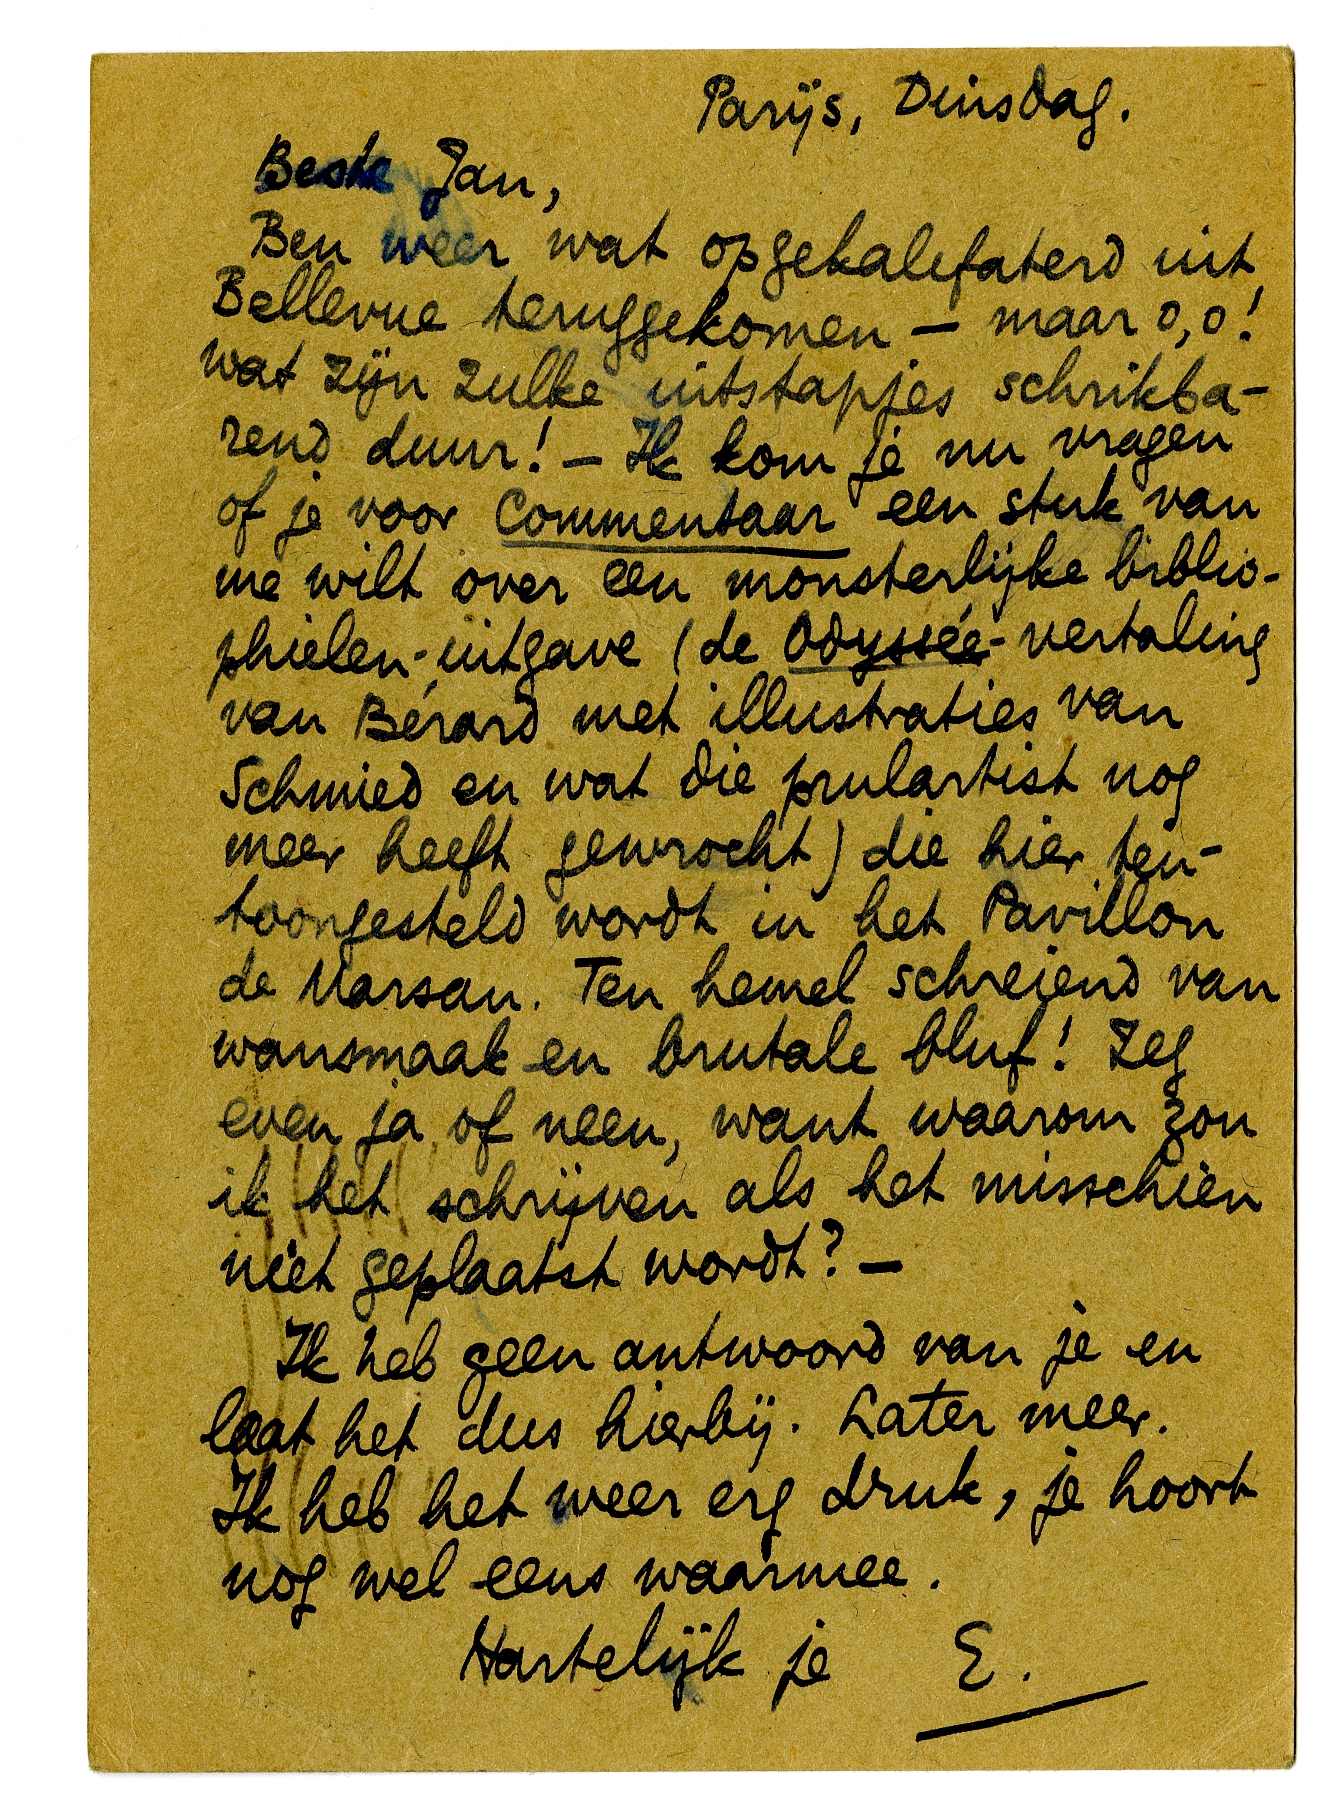 Parijs, Dinsdag.
Beste Jan,
Ben weer wat opgekalefaterd uit
Bellevue teruggekomen – maar o, o!
wat zijn zulke uitstapjes schrikba-
rend duur! – Ik kom je nu vragen
of je voor Commentaar een stuk van
me wilt over een monsterlijke biblio-
phielen-uitgave (de Odyssée-vertaling
van Bérard met illustraties van
Schmied en wat die prulartist nog
meer heeft gewrocht) die hier ten-
toongesteld wordt in het Pavillon
de Marsan. Ten hemel schreiend van
wansmaak en brutale bluf! Zeg
even ja of neen, want waarom zou
ik het schrijven als het misschien
niet geplaatst wordt? –
Ik heb geen antwoord van je en
laat het dus hierbij. Later meer.
Ik heb het weer erg druk, je hoort
nog wel eens waarmee.
Hartelijk je E.